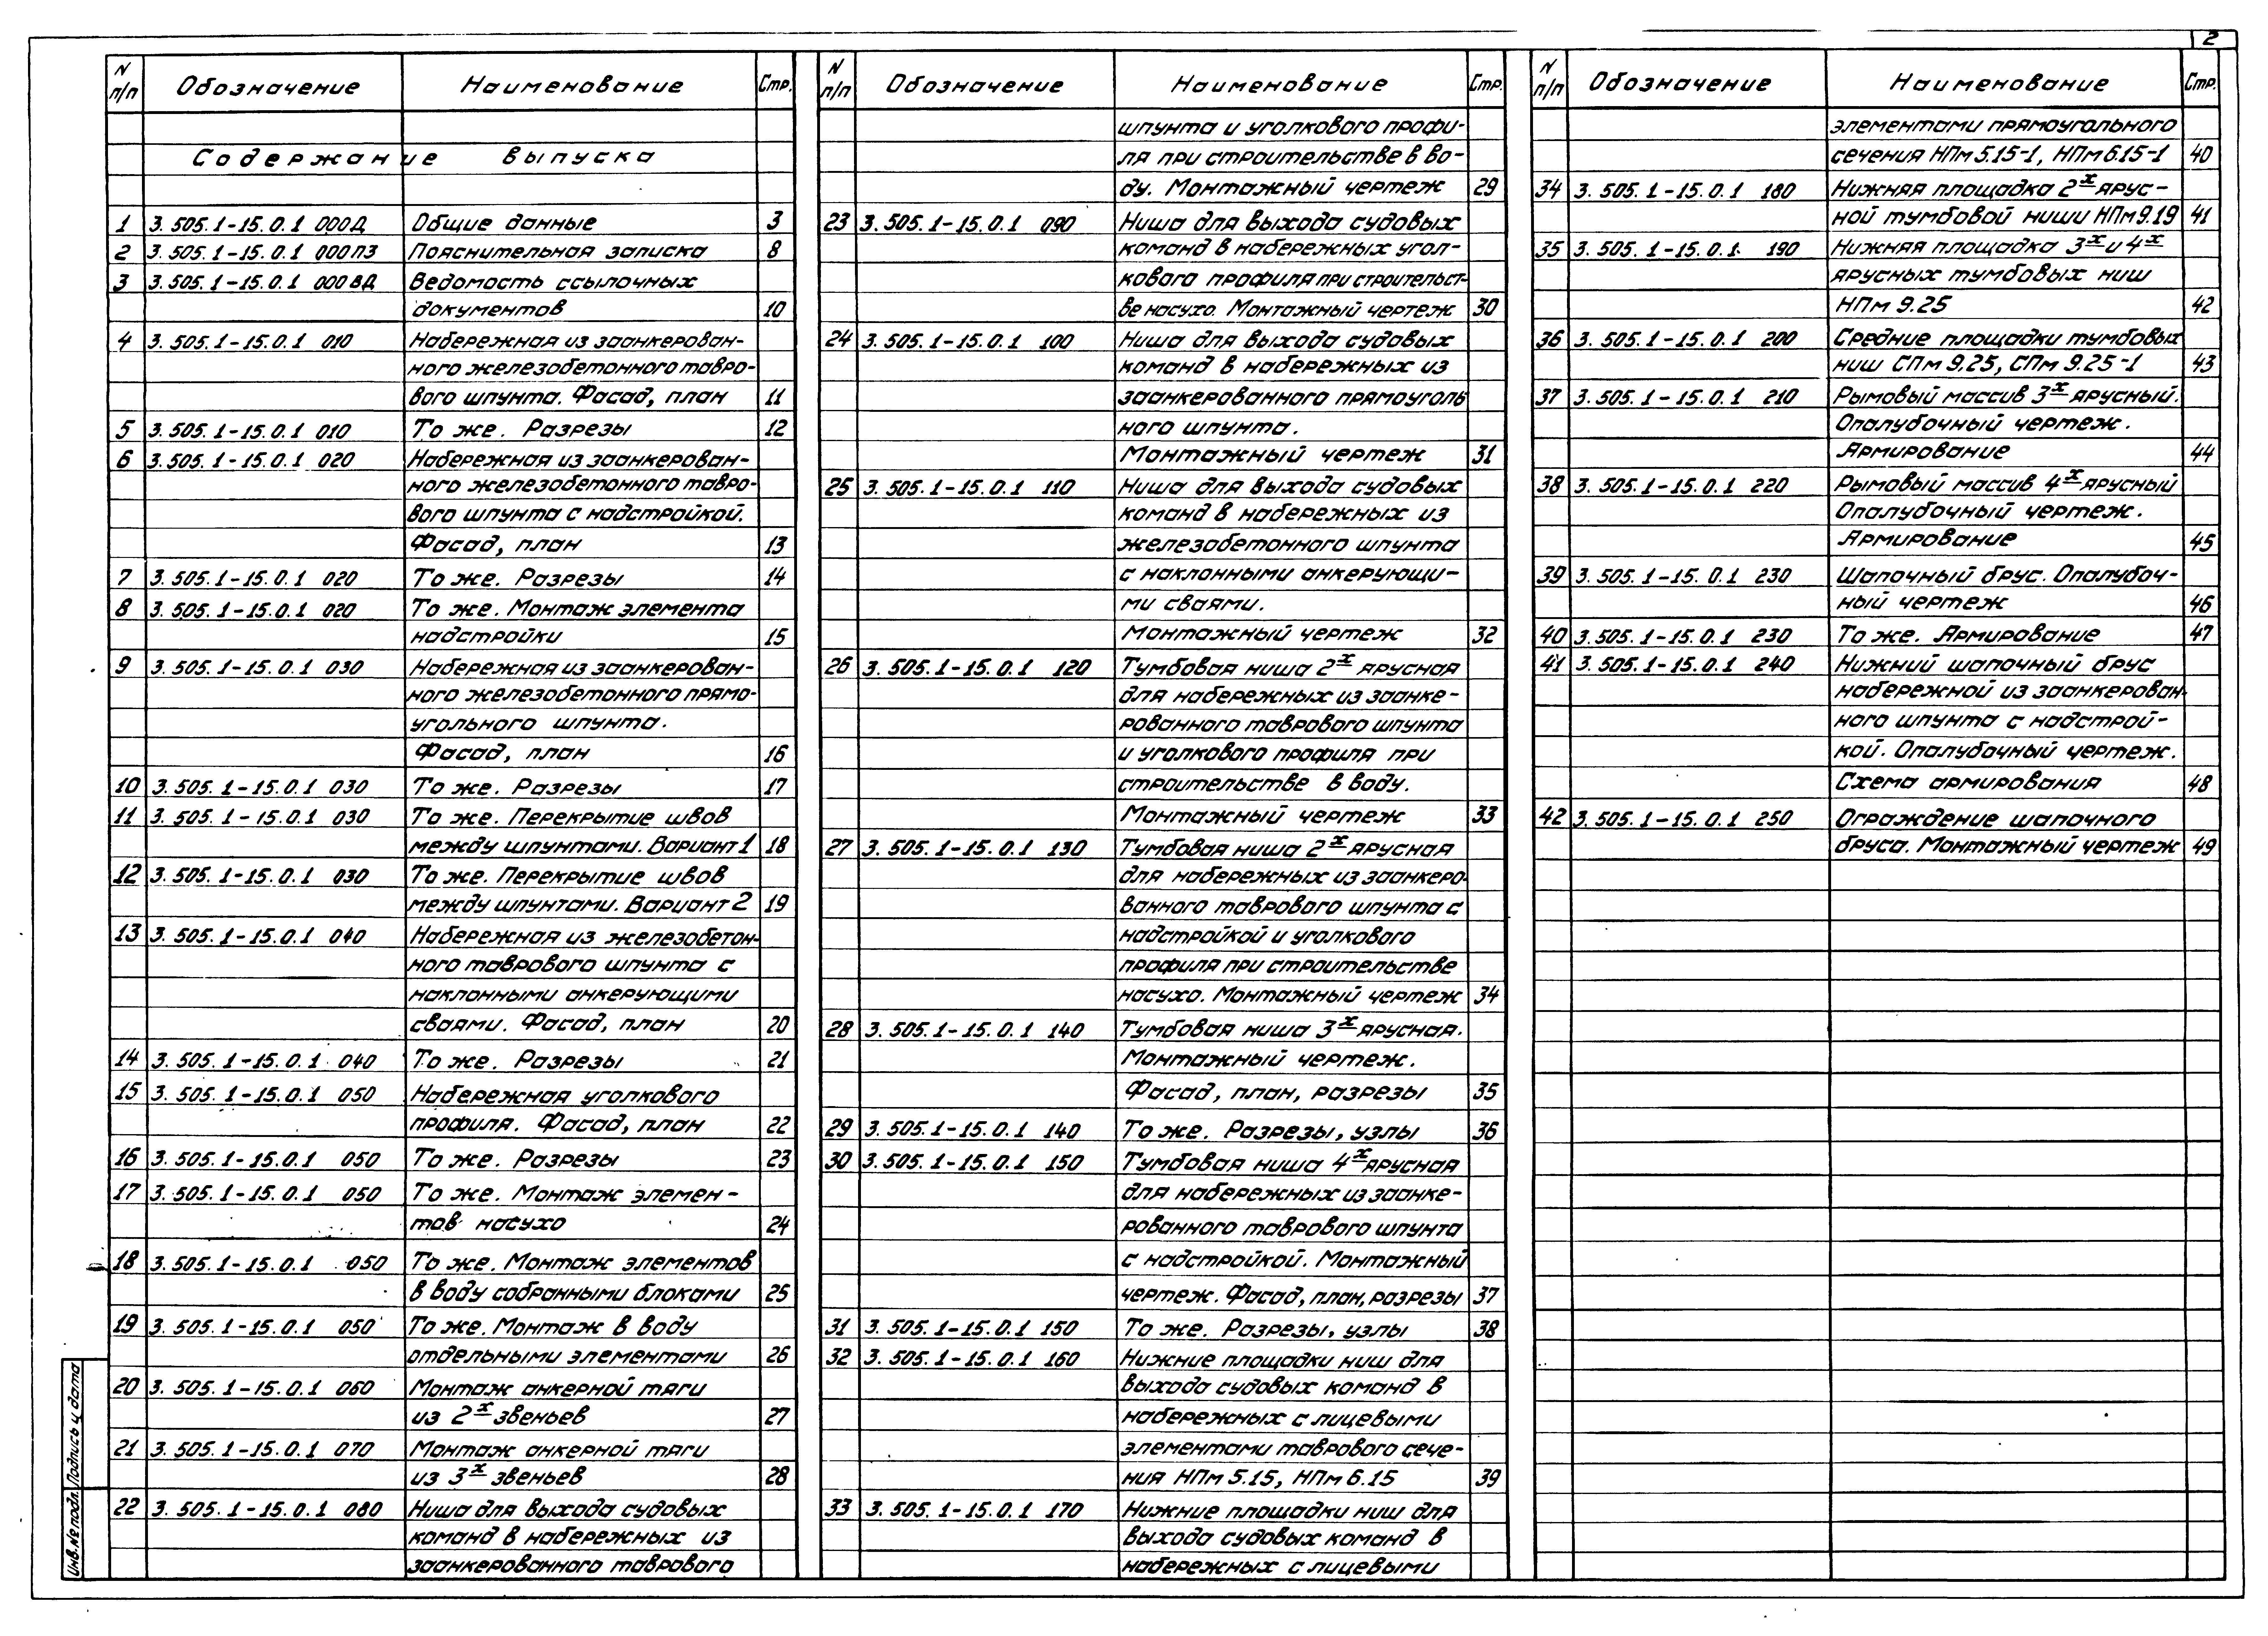 2
N п/п Обозначение Наименование Стр.
Содержание выпуска
1 3.505.1-15.0.1 000Д Общие данные 3
2 3.505.1-15.0.1 000ПЗ Пояснительная записка 8
3 3.505.1-15.0.1 000ВД Ведомость ссылочных
документов 10
4 3.505.1-15.0.1 010 Набережная из заанкерован-
ного железобетонного тавро-
вого шпунта. Фасад, план 11
5 3.505.1-15.0.1 010 То же. Разрезы 12
6 3.505.1-15.0.1 020 Набережная из заанкерован-
ного железобетонного тавро-
вого шпунта с надстройкой.
Фасад, план 13
7 3.505.1-15.0.1 020 То же. Разрезы 14
8 3.505.1-15.0.1 020 То же. Монтаж элемента
надстройки 15
9 3.505.1-15.0.1 030 Набережная из заанкерован-
ного железобетонного прямо-
угольного шпунта.
Фасад, план 16
10 3.505.1-15.0.1 030 То же. Разрезы 17
11 3.505.1-15.0.1 030 То же. Перекрытие швов
между шпунтами. Вариант 1 18
12 3.505.1-15.0.1 030 То же. Перекрытие швов
между шпунтами. Вариант 2 19
13 3.505.1-15.0.1 040 Набережная из железобетон-
ного таврового шпунта с
наклонными анкерующими
сваями. Фасад, план 20
14 3.505.1-15.0.1 040 То же. Разрезы 21
15 3.505.1-15.0.1 050 Набережная уголкового
профиля. Фасад, план 22
16 3.505.1-15.0.1 050 То же. Разрезы 23
17 3.505.1-15.0.1 050 То же. Монтаж элемен-
тов насухо 24
18 3.505.1-15.0.1 050 То же. Монтаж элементов
в воду собранными блоками 25
19 3.505.1-15.0.1 050 То же. Монтаж в воду
отдельными элементами 26
20 3.505.1-15.0.1 060 Монтаж анкерной тяги
из 2х звеньев 27
21 3.505.1-15.0.1 070 Монтаж анкерной тяги
из 3х звеньев 28
22 3.505.1-15.0.1 080 Ниша для выхода судовых
команд в набережных из
заанкерованного таврового
N п/п Обозначение Наименование Стр.
шпунта и уголкового профи-
ля при строительстве в во-
ду. Монтажный чертеж 29
23 3.505.1-15.0.1 090 Ниша для выхода судовых
команд в набережных угол-
кового профиля при строительст-
ве насухо. Монтажный чертеж 30
24 3.505.1-15.0.1 100 Ниша для выхода судовых
команд в набережных из
заанкерованного прямоуголь
ного шпунта.
Монтажный чертеж 31
25 3.505.1-15.0.1 110 Ниша для выхода судовых
команд в набережных из
железобетонного шпунта
с наклонными анкерующи-
ми сваями.
Монтажный чертеж 32
26 3.505.1-15.0.1 120 Тумбовая ниша 2х ярусная
для набережных из заанке-
рованного таврового шпунта
и уголкового профиля при
строительстве в воду.
Монтажный чертеж 33
27 3.505.1-15.0.1 130 Тумбовая ниша 2х ярусная
для набережных из заанкеро-
ванного таврового шпунта с
надстройкой и уголкового
профиля при строительстве
насухо. Монтажный чертеж 34
28 3.505.1-15.0.1 140 Тумбовая ниша 3х ярусная.
Монтажный чертеж.
Фасад, план, разрезы 35
29 3.505.1-15.0.1 140 То же. Разрезы, узлы 36
30 3.505.1-15.0.1 150 Тумбовая ниша 4х ярусная
для набережных из заанке-
рованного таврового шпунта
с надстройкой. Монтажный
чертеж. Фасад, план, разрезы 37
31 3.505.1-15.0.1 150 То же. Разрезы, узлы 38
32 3.505.1-15.0.1 160 Нижние площадки ниш для
выхода судовых команд в
набережных с лицевыми
элементами таврового сече-
ния НПм 5.15, НПм 6.15 39
33 3.505.1-15.0.1 170 Нижние площадки ниш для
выхода судовых команд в
набережных с лицевыми
N п/п Обозначение Наименование Стр.
элементами прямоугольного
сечения НПм 5.15-1, НПм 6.15-1 40
34 3.505.1-15.0.1 180 Нижняя площадка 2х ярус-
ной тумбовой ниши НПм 9.19 41
35 3.505.1-15.0.1. 190 Нижняя площадка 3х и 4х
ярусных тумбовых ниш
НПм 9.25 42
36 3.505.1-15.0.1 200 Средние площадки тумбовых
ниш СПм 9.25, СПм 9.25-1 43
37 3.505.1-15.0.1 210 Рымовый массив 3х ярусный.
Опалубочный чертеж.
Армирование 44
38 3.505.1-15.0.1 220 Рымовый массив 4х ярусный
Опалубочный чертеж.
Армирование 45
39 3.505.1-15.0.1 230 Шапочный брус. Опалубоч-
ный чертеж 46
40 3.505.1-15.0.1 230 То же. Армирование 47
41 3.505.1-15.0.1 240 Нижний шапочный брус
набережной из заанкерован-
ного шпунта с надстрой-
кой. Опалубочный чертеж.
Схема армирования 48
42 3.505.1-15.0.1 250 Ограждение шапочного
бруса. Монтажный чертеж 49
Инв.№ подл. Подпись и дата